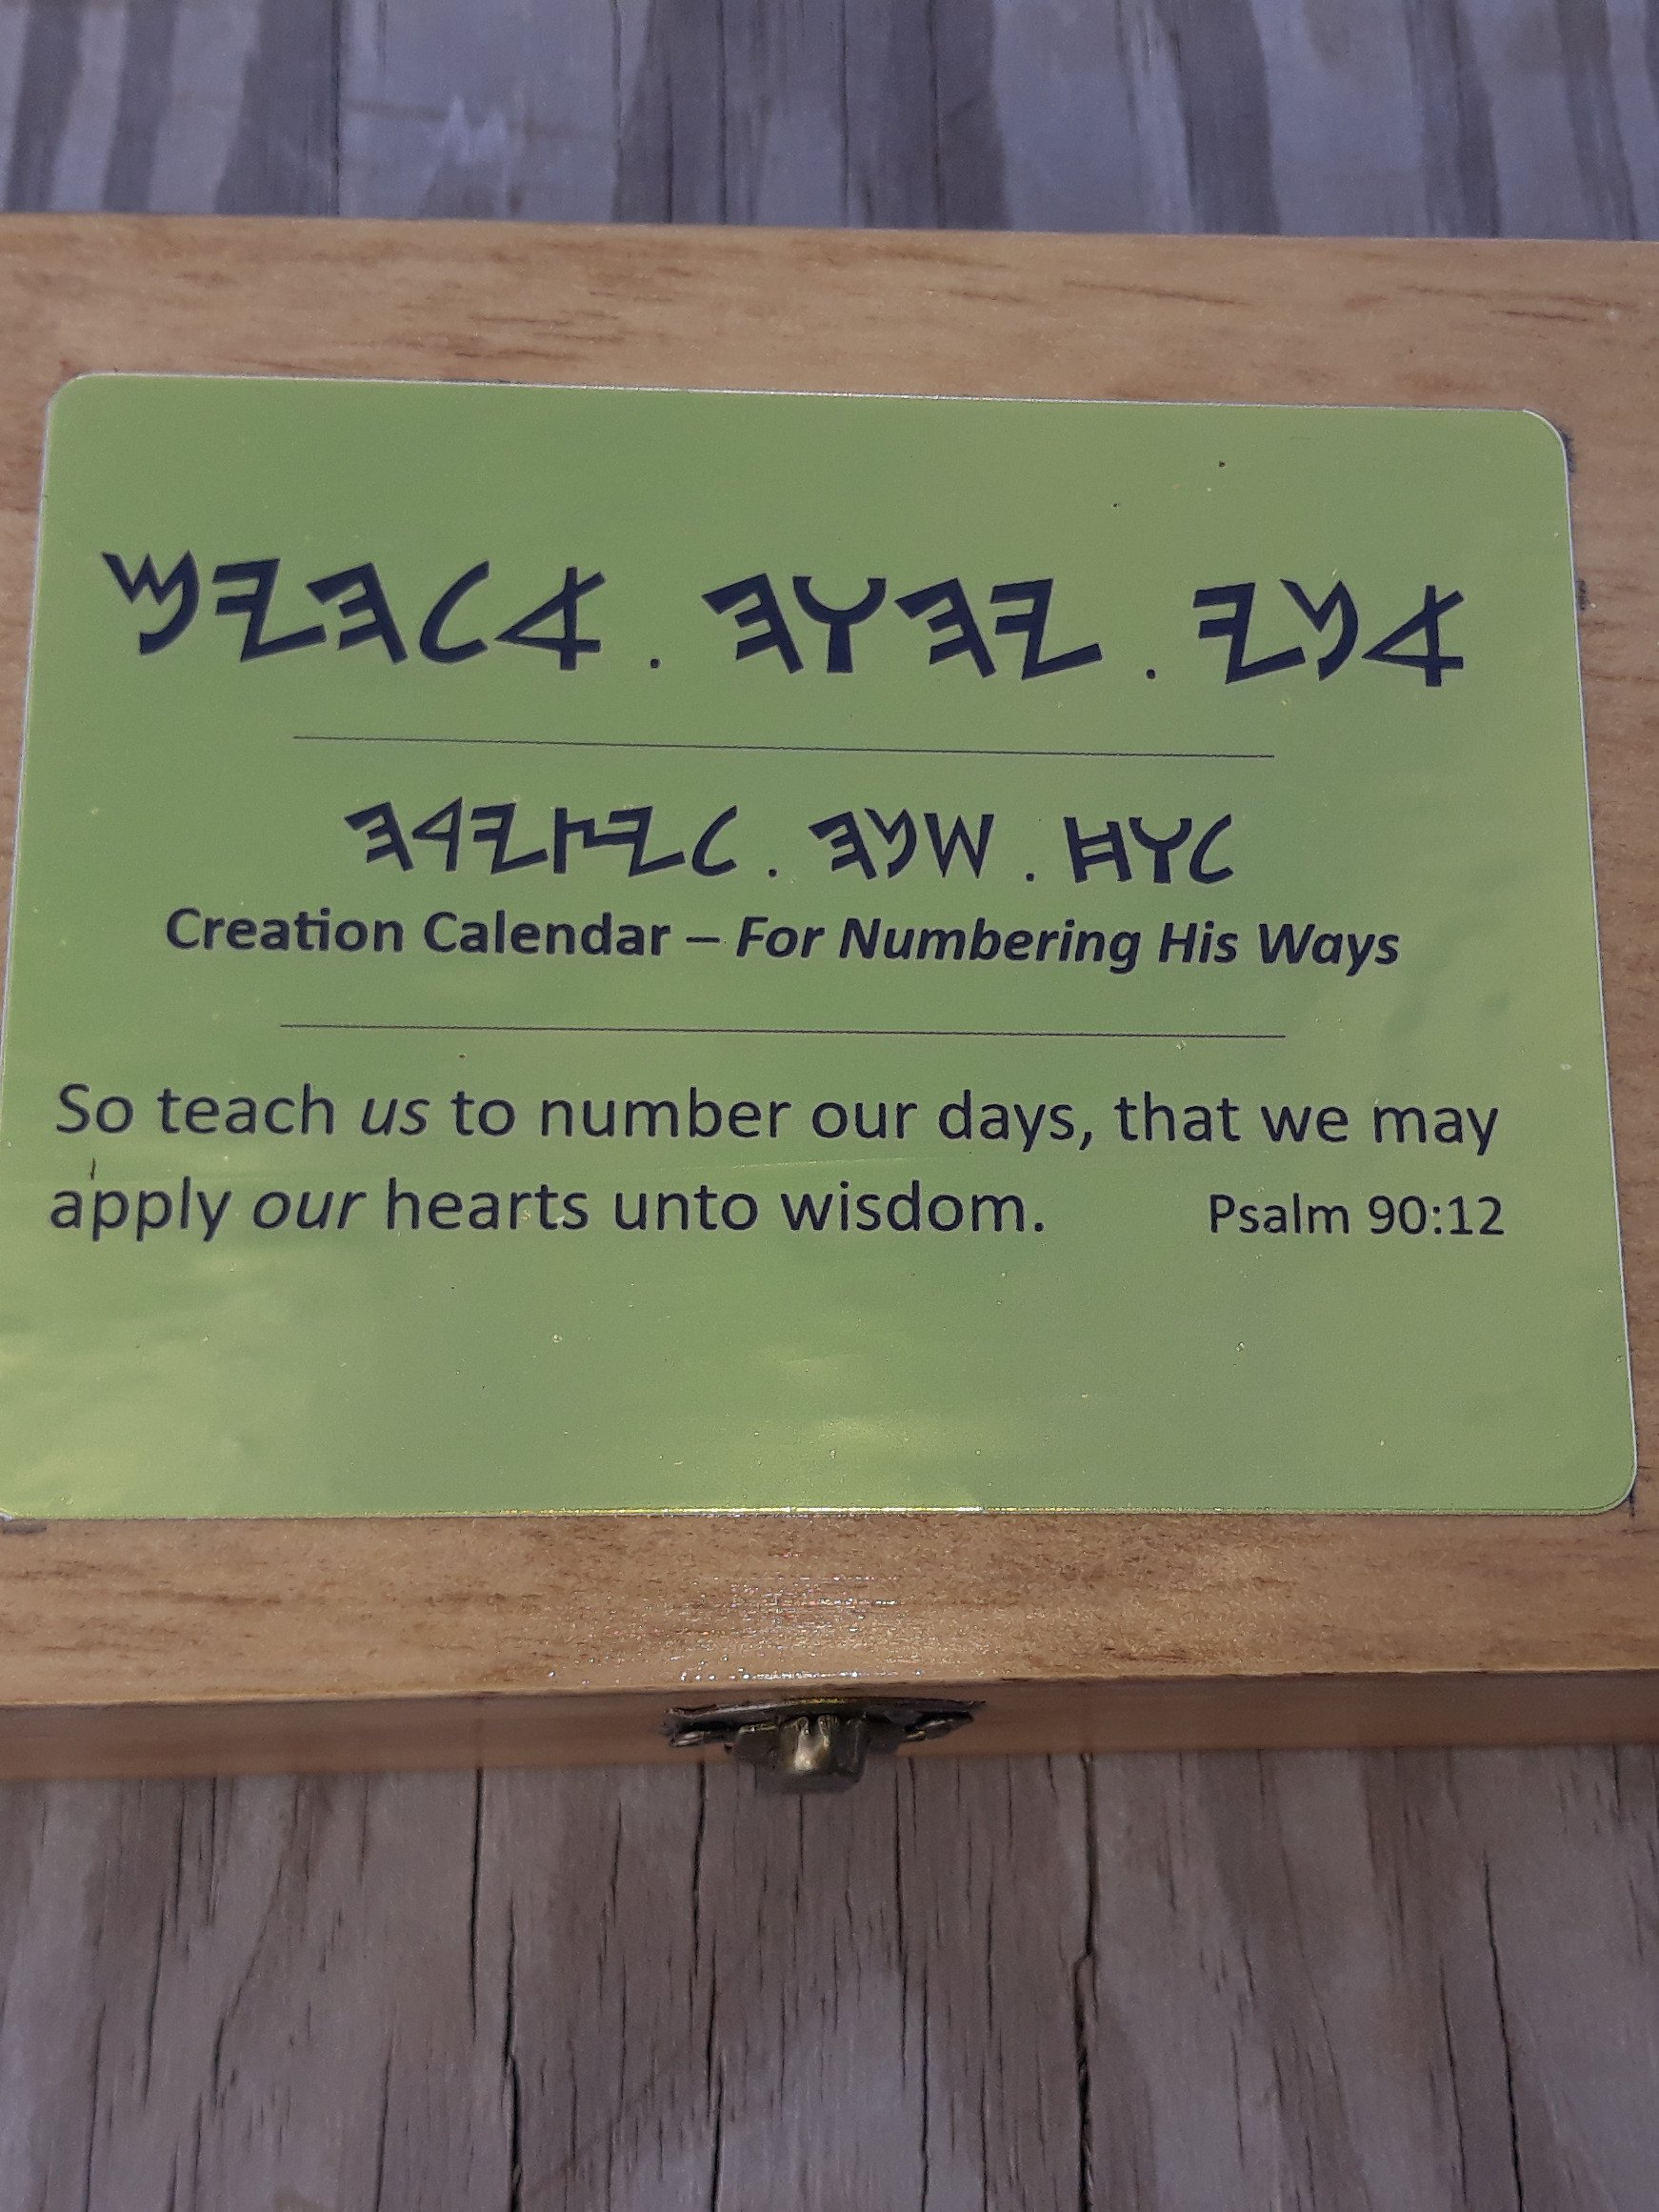 𐤀𐤍𐤉 . 𐤉𐤄𐤅𐤄 . 𐤀𐤋𐤄𐤉𐤌
𐤋𐤅𐤇 . 𐤔𐤍𐤄 . 𐤋𐤉𐤑𐤉𐤓𐤄
Creation Calendar – For Numbering His Ways
So teach us to number our days, that we may
apply our hearts unto wisdom. Psalm 90:12